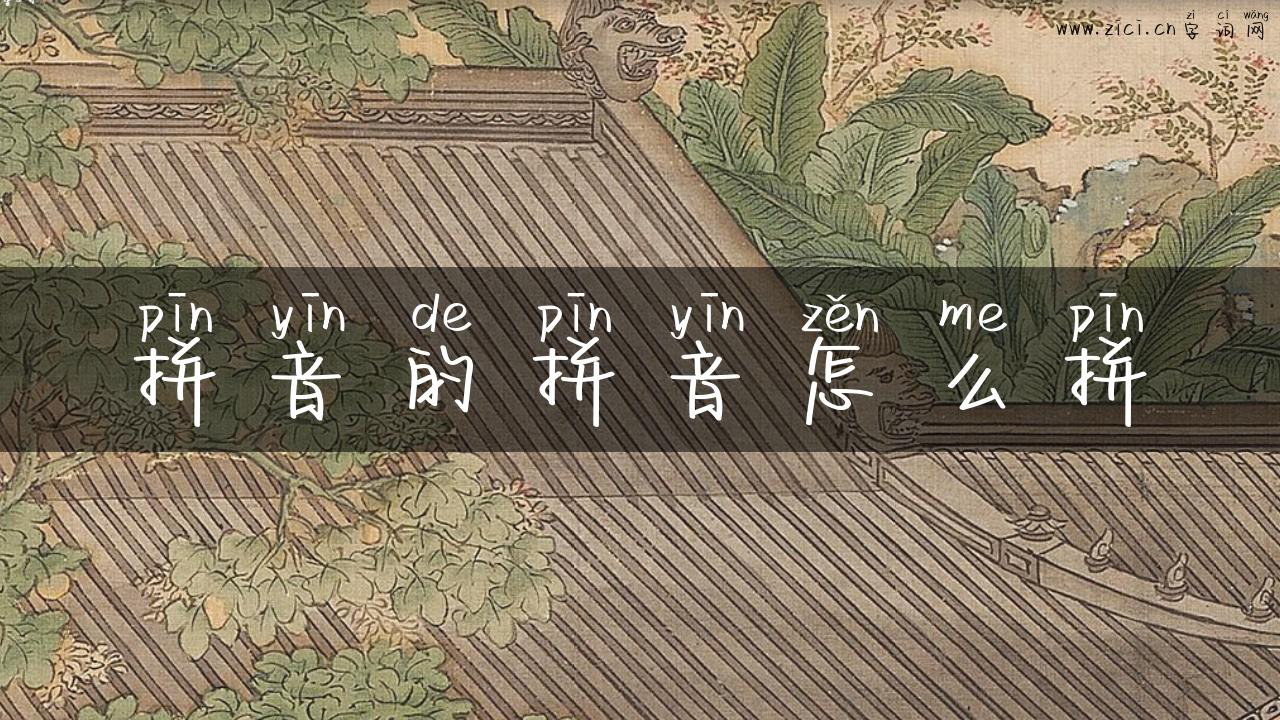 zì cí wǎng
www.zici.cn 字词网
pīn yīn de pīn yīn zěn me pīn
拼音的拼音怎么拼